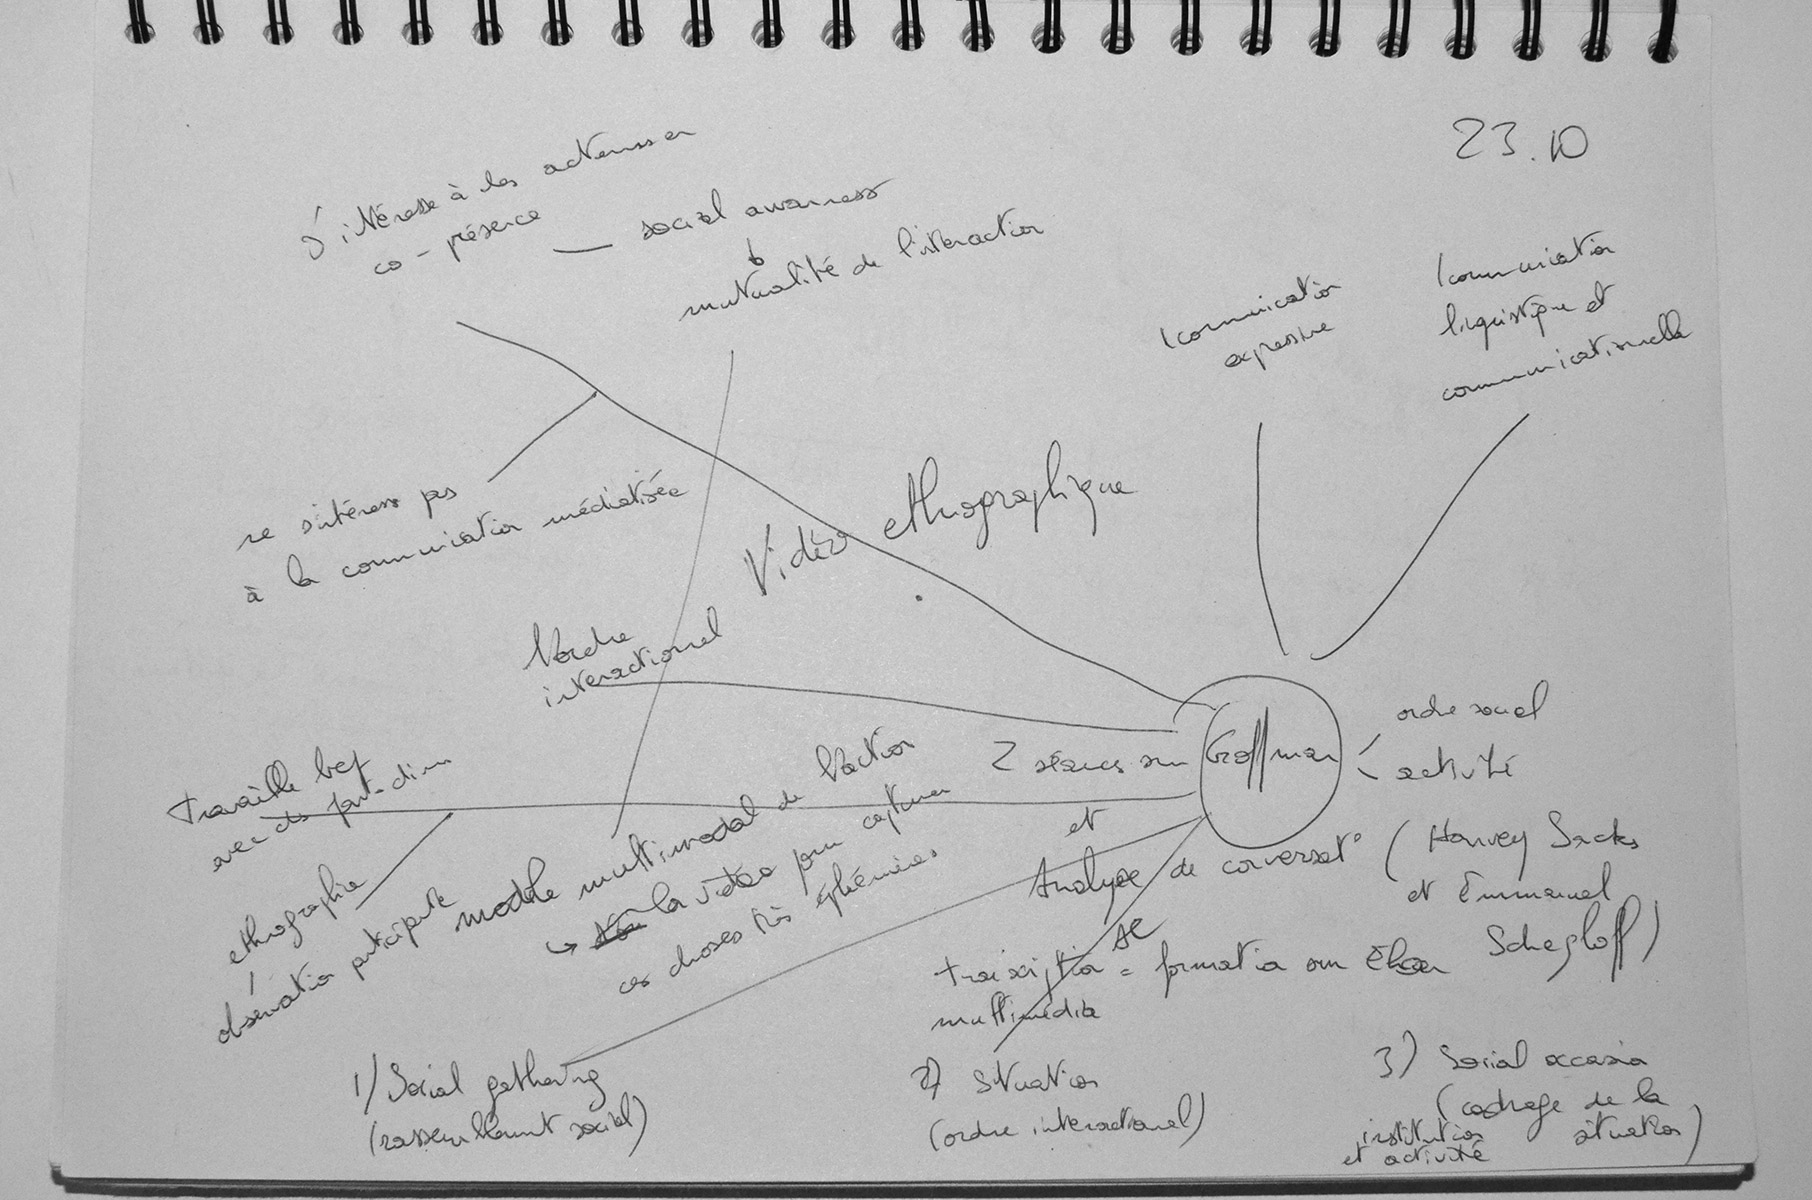 23.10
S'intéresse à les acteurs en
co-présence — social awarness
mutualité de l'interaction
communication
expressive
communication
linguistique et
communicationnelle
ne s'intéresse pas
à la communication médiatisée
Vidéo ethnographique
l'ordre
interactionnel
ordre social
2 séances sur Goffman
activité
et
Travaille
avec des
Analyse de conversat° (Harvey Sacks
et Emmanuel
Schegloff)
ethnographie
observation participante
modèle multimodal de l'action
↳ la vidéo pour capturer
ces choses très éphémères
transcription = formation sur
multimédia
1) Social gathering
(rassemblement social)
2) Situation
(ordre interactionnel)
3) Social occasion
(cadrage de la
situation)
institution
et activité